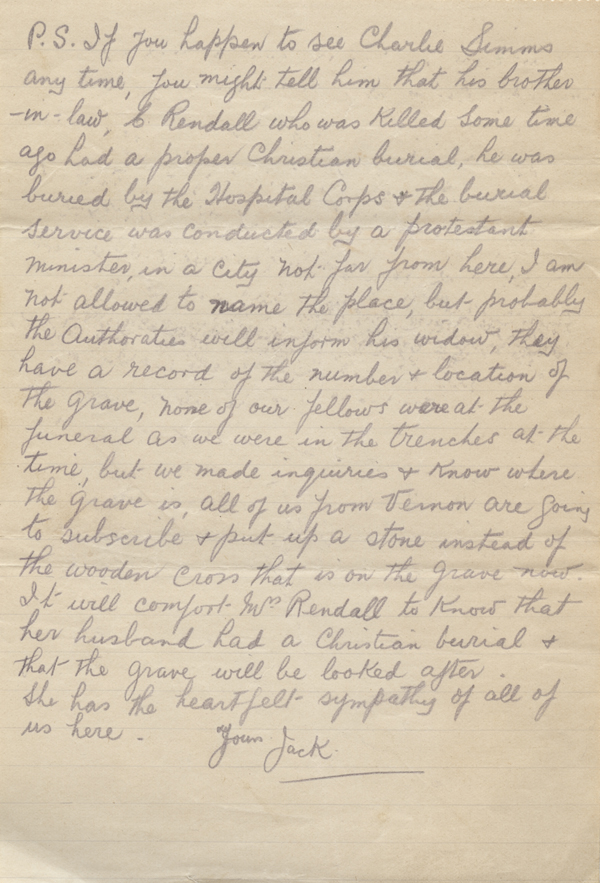 P.S. If you happen to see Charlie Simms
any time, you might tell him that his brother
-in-law, E Rendall who was killed some time
ago had a proper Christian burial, he was
buried by the Hospital Corps & the burial
service was conducted by a protestant
minister, in a city not far from here, I am
not allowed to name the place, but probably
the Authoraties will inform his widow, they
have a record of the number & location of
the grave, none of our fellows were at the
funeral as we were in the trenches at the
time, but we made inquiries & know where
the grave is, all of us from Vernon are going
to subscribe & put up a stone instead of
the wooden cross that is on the grave now.
It will comfort Mrs Rendall to know that
her husband had a Christian burial &
that the grave will be looked after.
She has the heartfelt sympathy of all of
us here. Yours Jack.